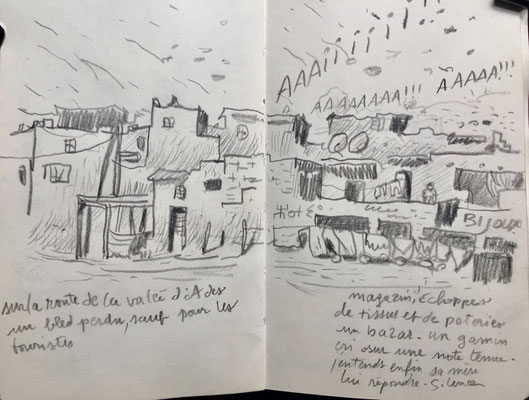 AAAiiiiii
AAAAAAAA!!!
AAAAA!!!
Hot
BIJOUX
sur la route de la valée d'Ades
un bled perdu, sauf pour les
touristes
magazin, échoppes
de tissus et de poteries
un bazar. un gamin
cri sur une note tenue.
j'entends enfin sa mère
lui répondre. Silence